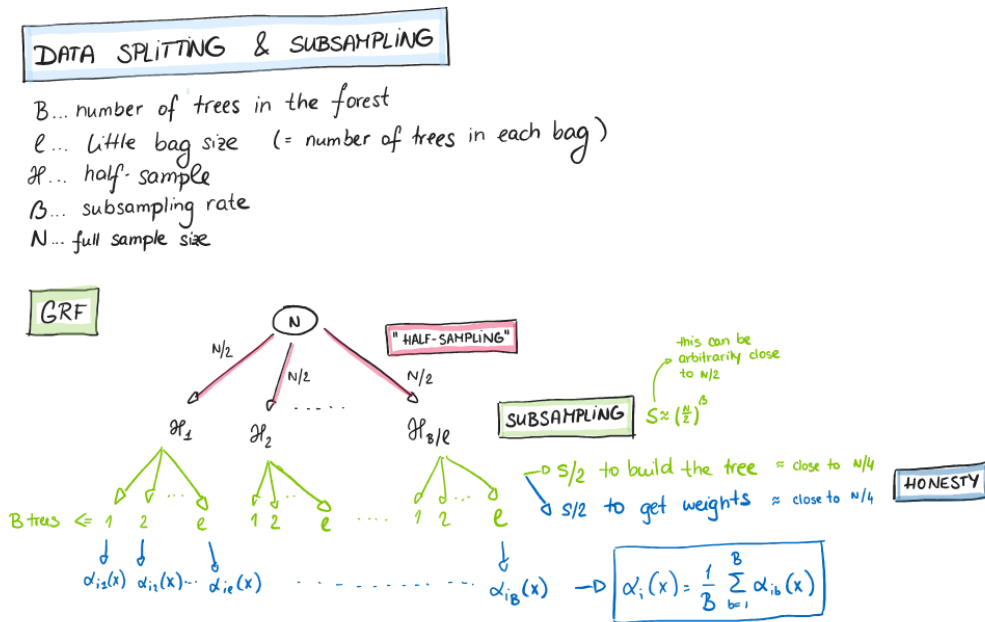 DATA SPLITTING & SUBSAMPLING
B... number of trees in the forest
ℓ... little bag size (= number of trees in each bag)
ℋ... half-sample
β... subsampling rate
N... full sample size
GRF
N
"HALF-SAMPLING"
N/2 N/2 N/2
this can be
arbitrarily close
to N/2
ℋ₁ ℋ₂ ..... ℋ_B/ℓ
SUBSAMPLING S≈(N/2)^β
S/2 to build the tree ≈ close to N/4
S/2 to get weights ≈ close to N/4
HONESTY
B trees <= 1 2 ... ℓ 1 2 ... ℓ .... 1 2 ... ℓ
α_i1(x) α_i2(x)... α_iℓ(x) ............ α_iB(x) → α_i(x) = 1/B ∑_{b=1}^{B} α_ib(x)